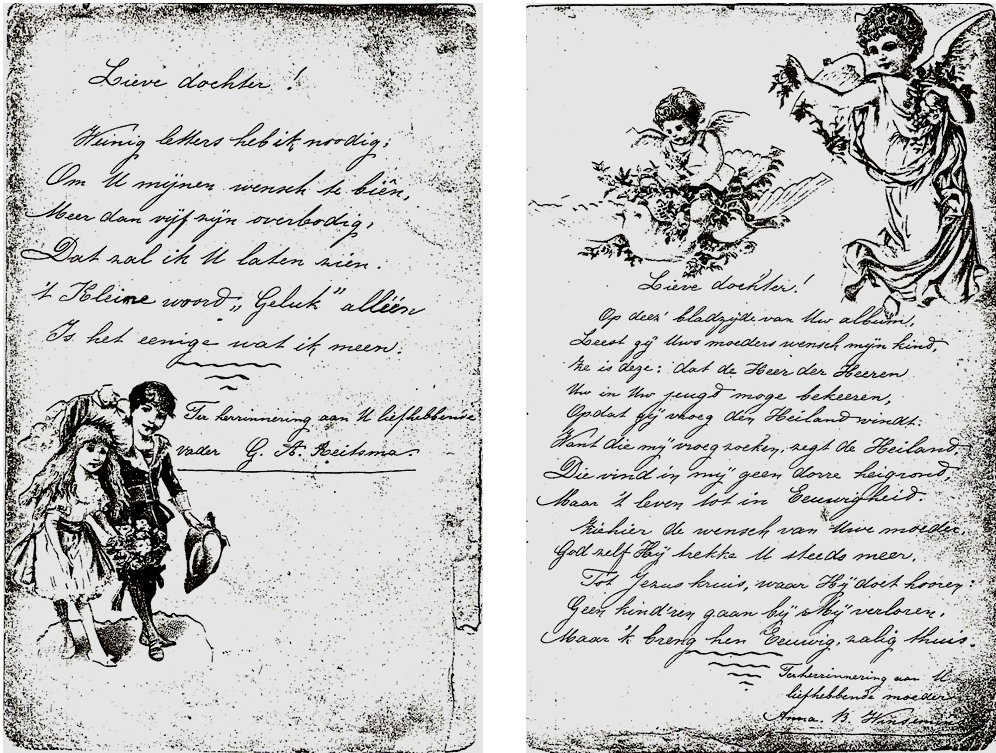 Lieve dochter!
Weinig letters heb ik noodig;
Om U mijnen wensch te biên,
Meer dan vijf zijn overbodig,
Dat zal ik U laten zien.
't Kleine woord „Geluk” alléén
Is het eenige wat ik meen.
Ter herrinnering aan U liefhebbende
vader G. A. Reitsma.
Lieve dochter!
Op deez' bladzijde van Uw album,
Leest gij Uws moeders wensch mijn kind,
Ze is deze: dat de Heer der Heeren
Uw in Uw jeugd moge bekeeren,
Opdat gij vroeg den Heiland vindt.
Want die mij vroeg zoeken, zegt de Heiland,
Die vind in mij geen dorre heigrond,
Maar 't leven tot in Eeuwigheid.
Ziehier de wensch van Uwe moeder,
God zelf Hij trekke U steeds meer,
Tot Jezus kruis, waar Hij doet hooren:
Geen kind'ren gaan bij Mij verloren,
Maar 'k breng hen Eeuwig, zalig thuis.
Ter herrinnering aan U
liefhebbende moeder
Anna. B.